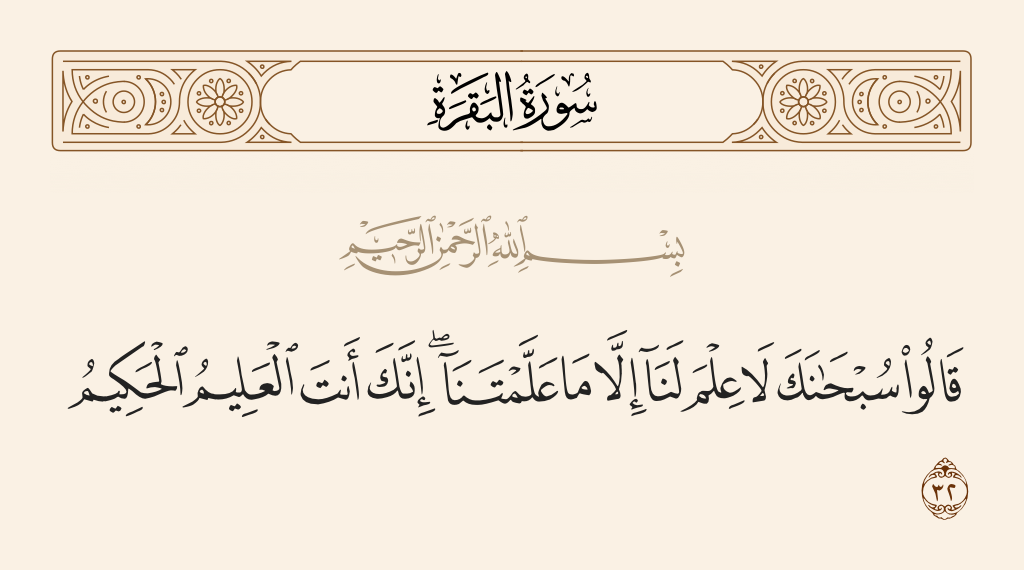 سُورَةُ البَقَرَةِ
بِسْمِ ٱللَّهِ ٱلرَّحْمَٰنِ ٱلرَّحِيمِ
قَالُوا۟ سُبْحَـٰنَكَ لَا عِلْمَ لَنَآ إِلَّا مَا عَلَّمْتَنَآ ۖ إِنَّكَ أَنتَ ٱلْعَلِيمُ ٱلْحَكِيمُ
٣٢